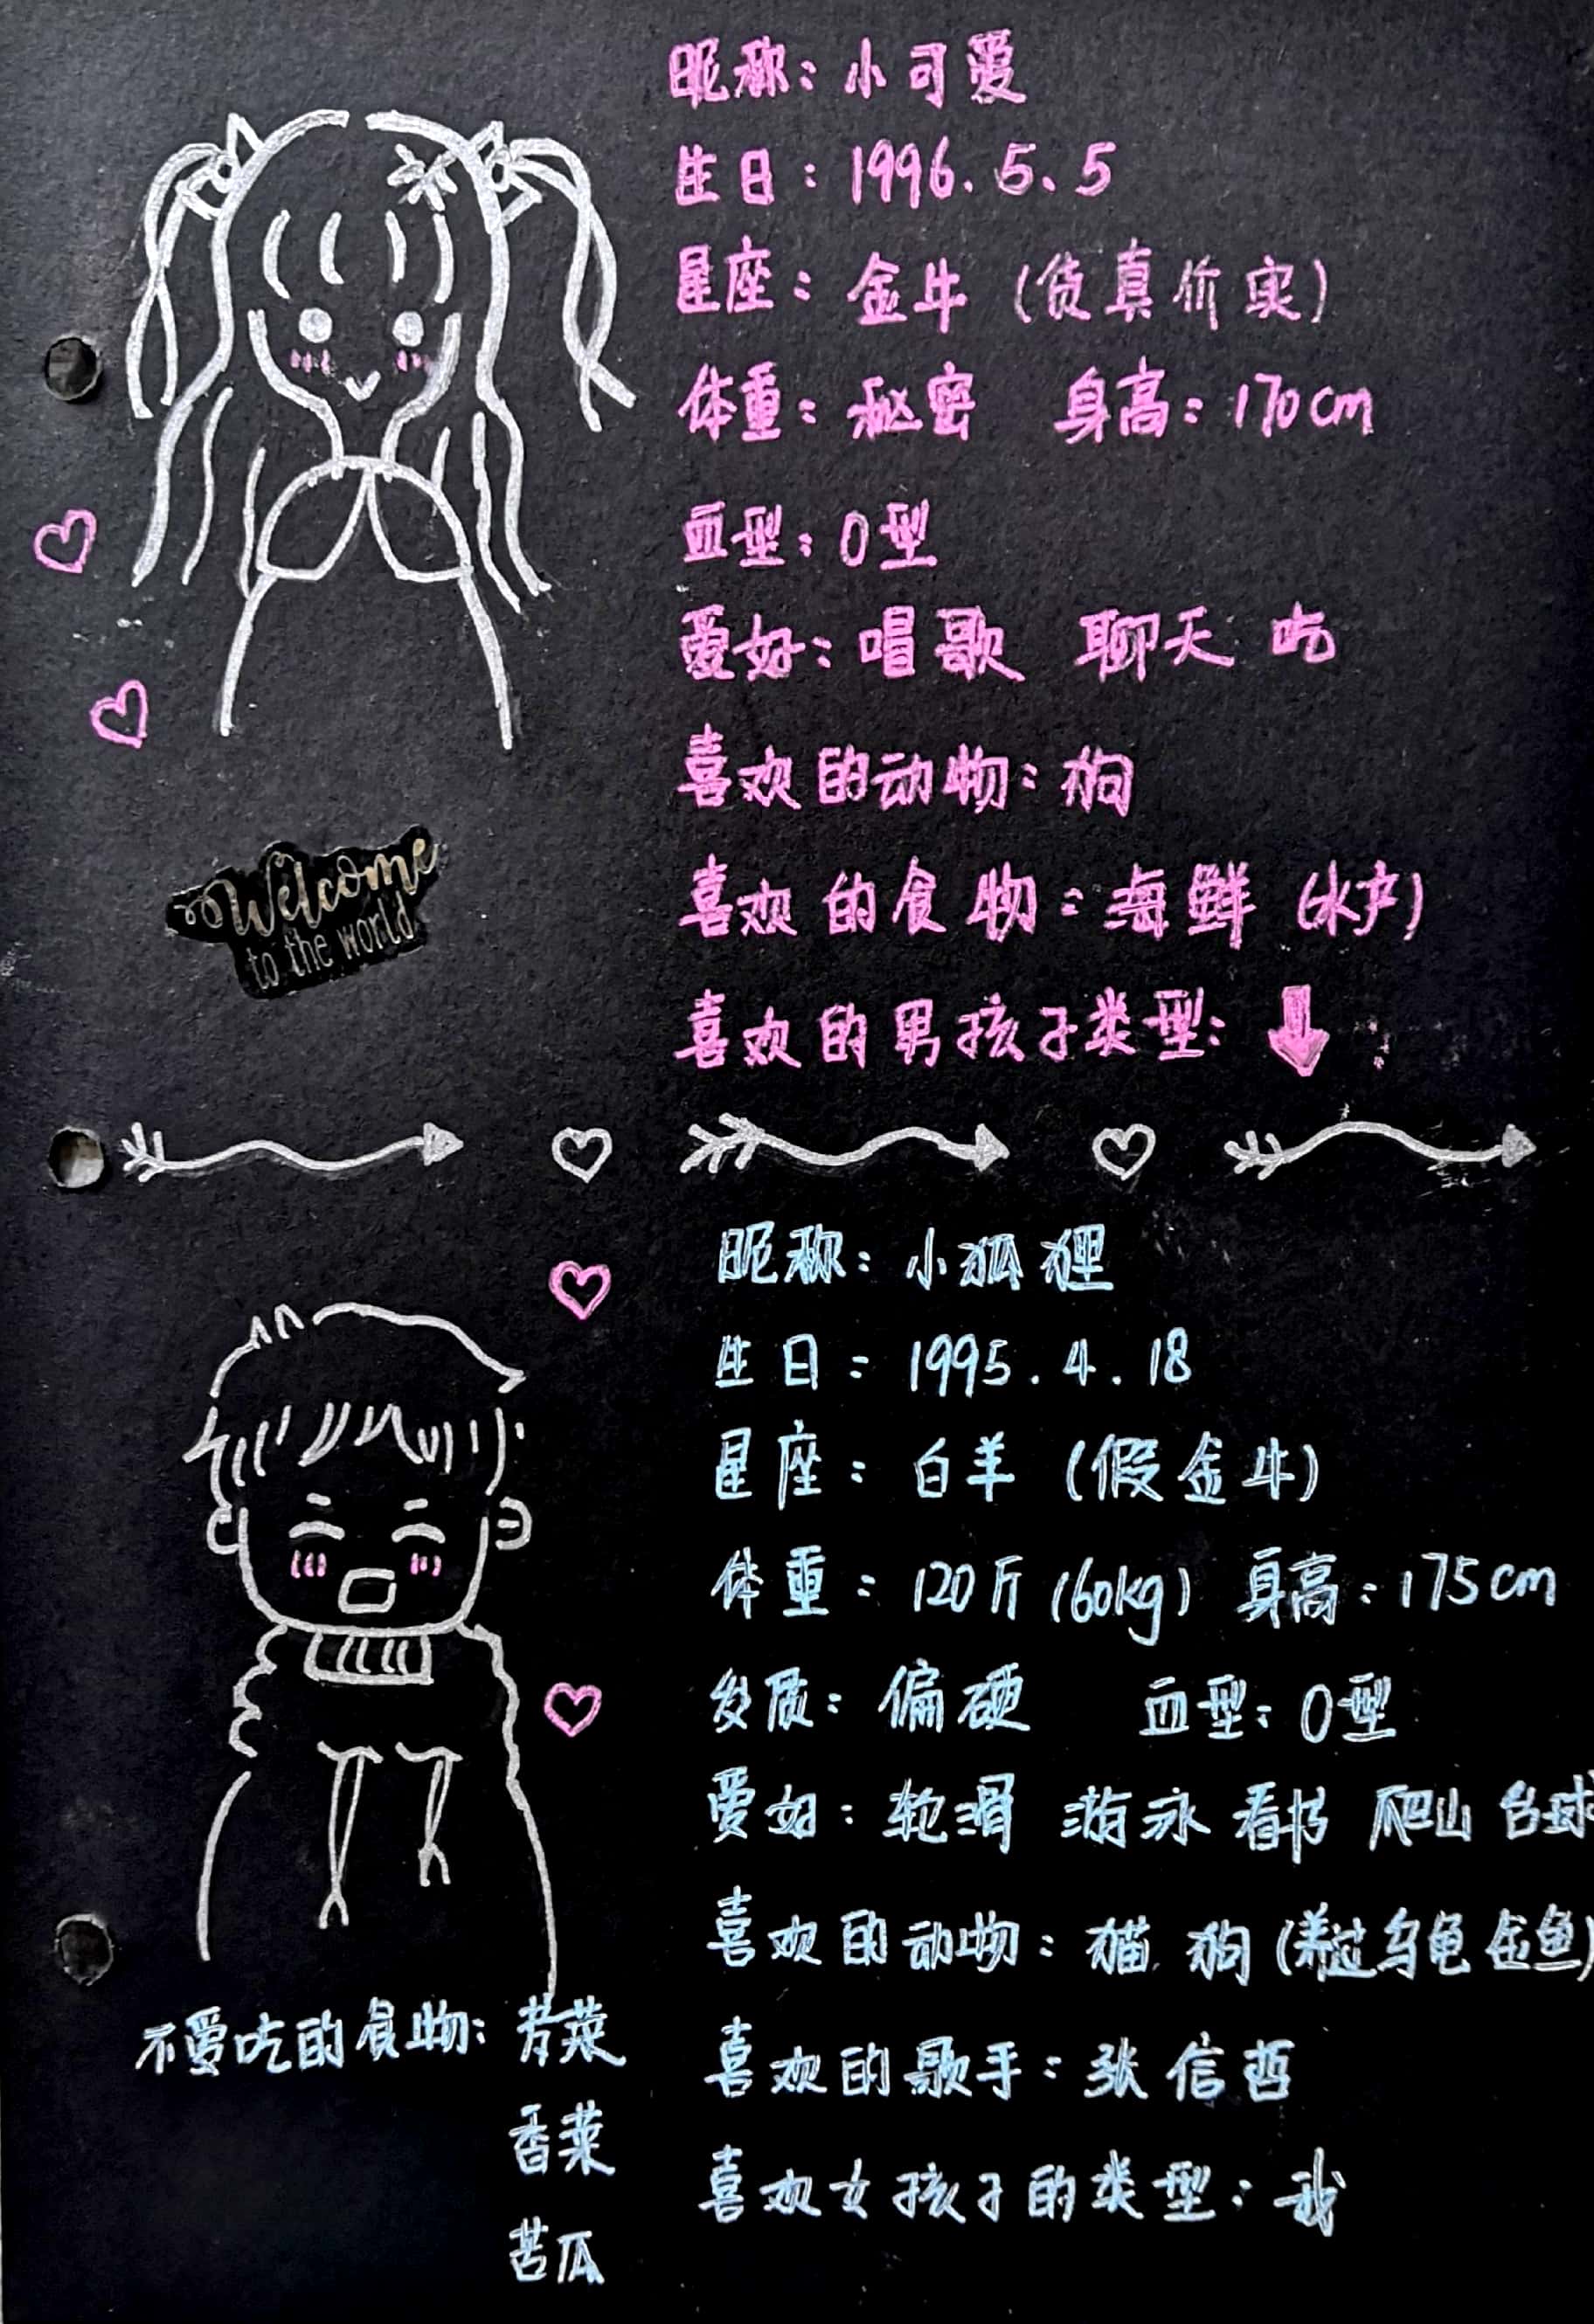 昵称：小可爱
生日：1996.5.5
星座：金牛（货真价实）
体重：秘密 身高：170cm
血型：O型
爱好：唱歌 聊天 吃
喜欢的动物：狗
喜欢的食物：海鲜（水产）
喜欢的男孩子类型：
Welcome
to the world
昵称：小狐狸
生日：1995.4.18
星座：白羊（假金牛）
体重：120斤（60kg）身高：175cm
发质：偏硬 血型：O型
爱好：轮滑 游泳 看书 爬山 台球
喜欢的动物：猫 狗（养过乌龟 金鱼）
喜欢的歌手：张信哲
喜欢女孩子的类型：我
不爱吃的食物：芹菜
香菜
苦瓜